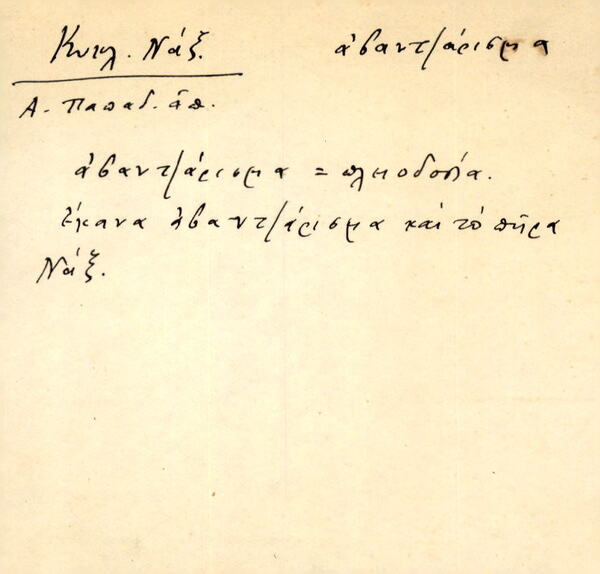 Κυκλ. Νάξ. ἀβαντζάρισμα
Α. Παπαδ. ἀπ.
ἀβαντζάρισμα = πλειοδοσία.
Ἔκανα ἀβαντζάρισμα καὶ τὸ πῆρα
Νάξ.